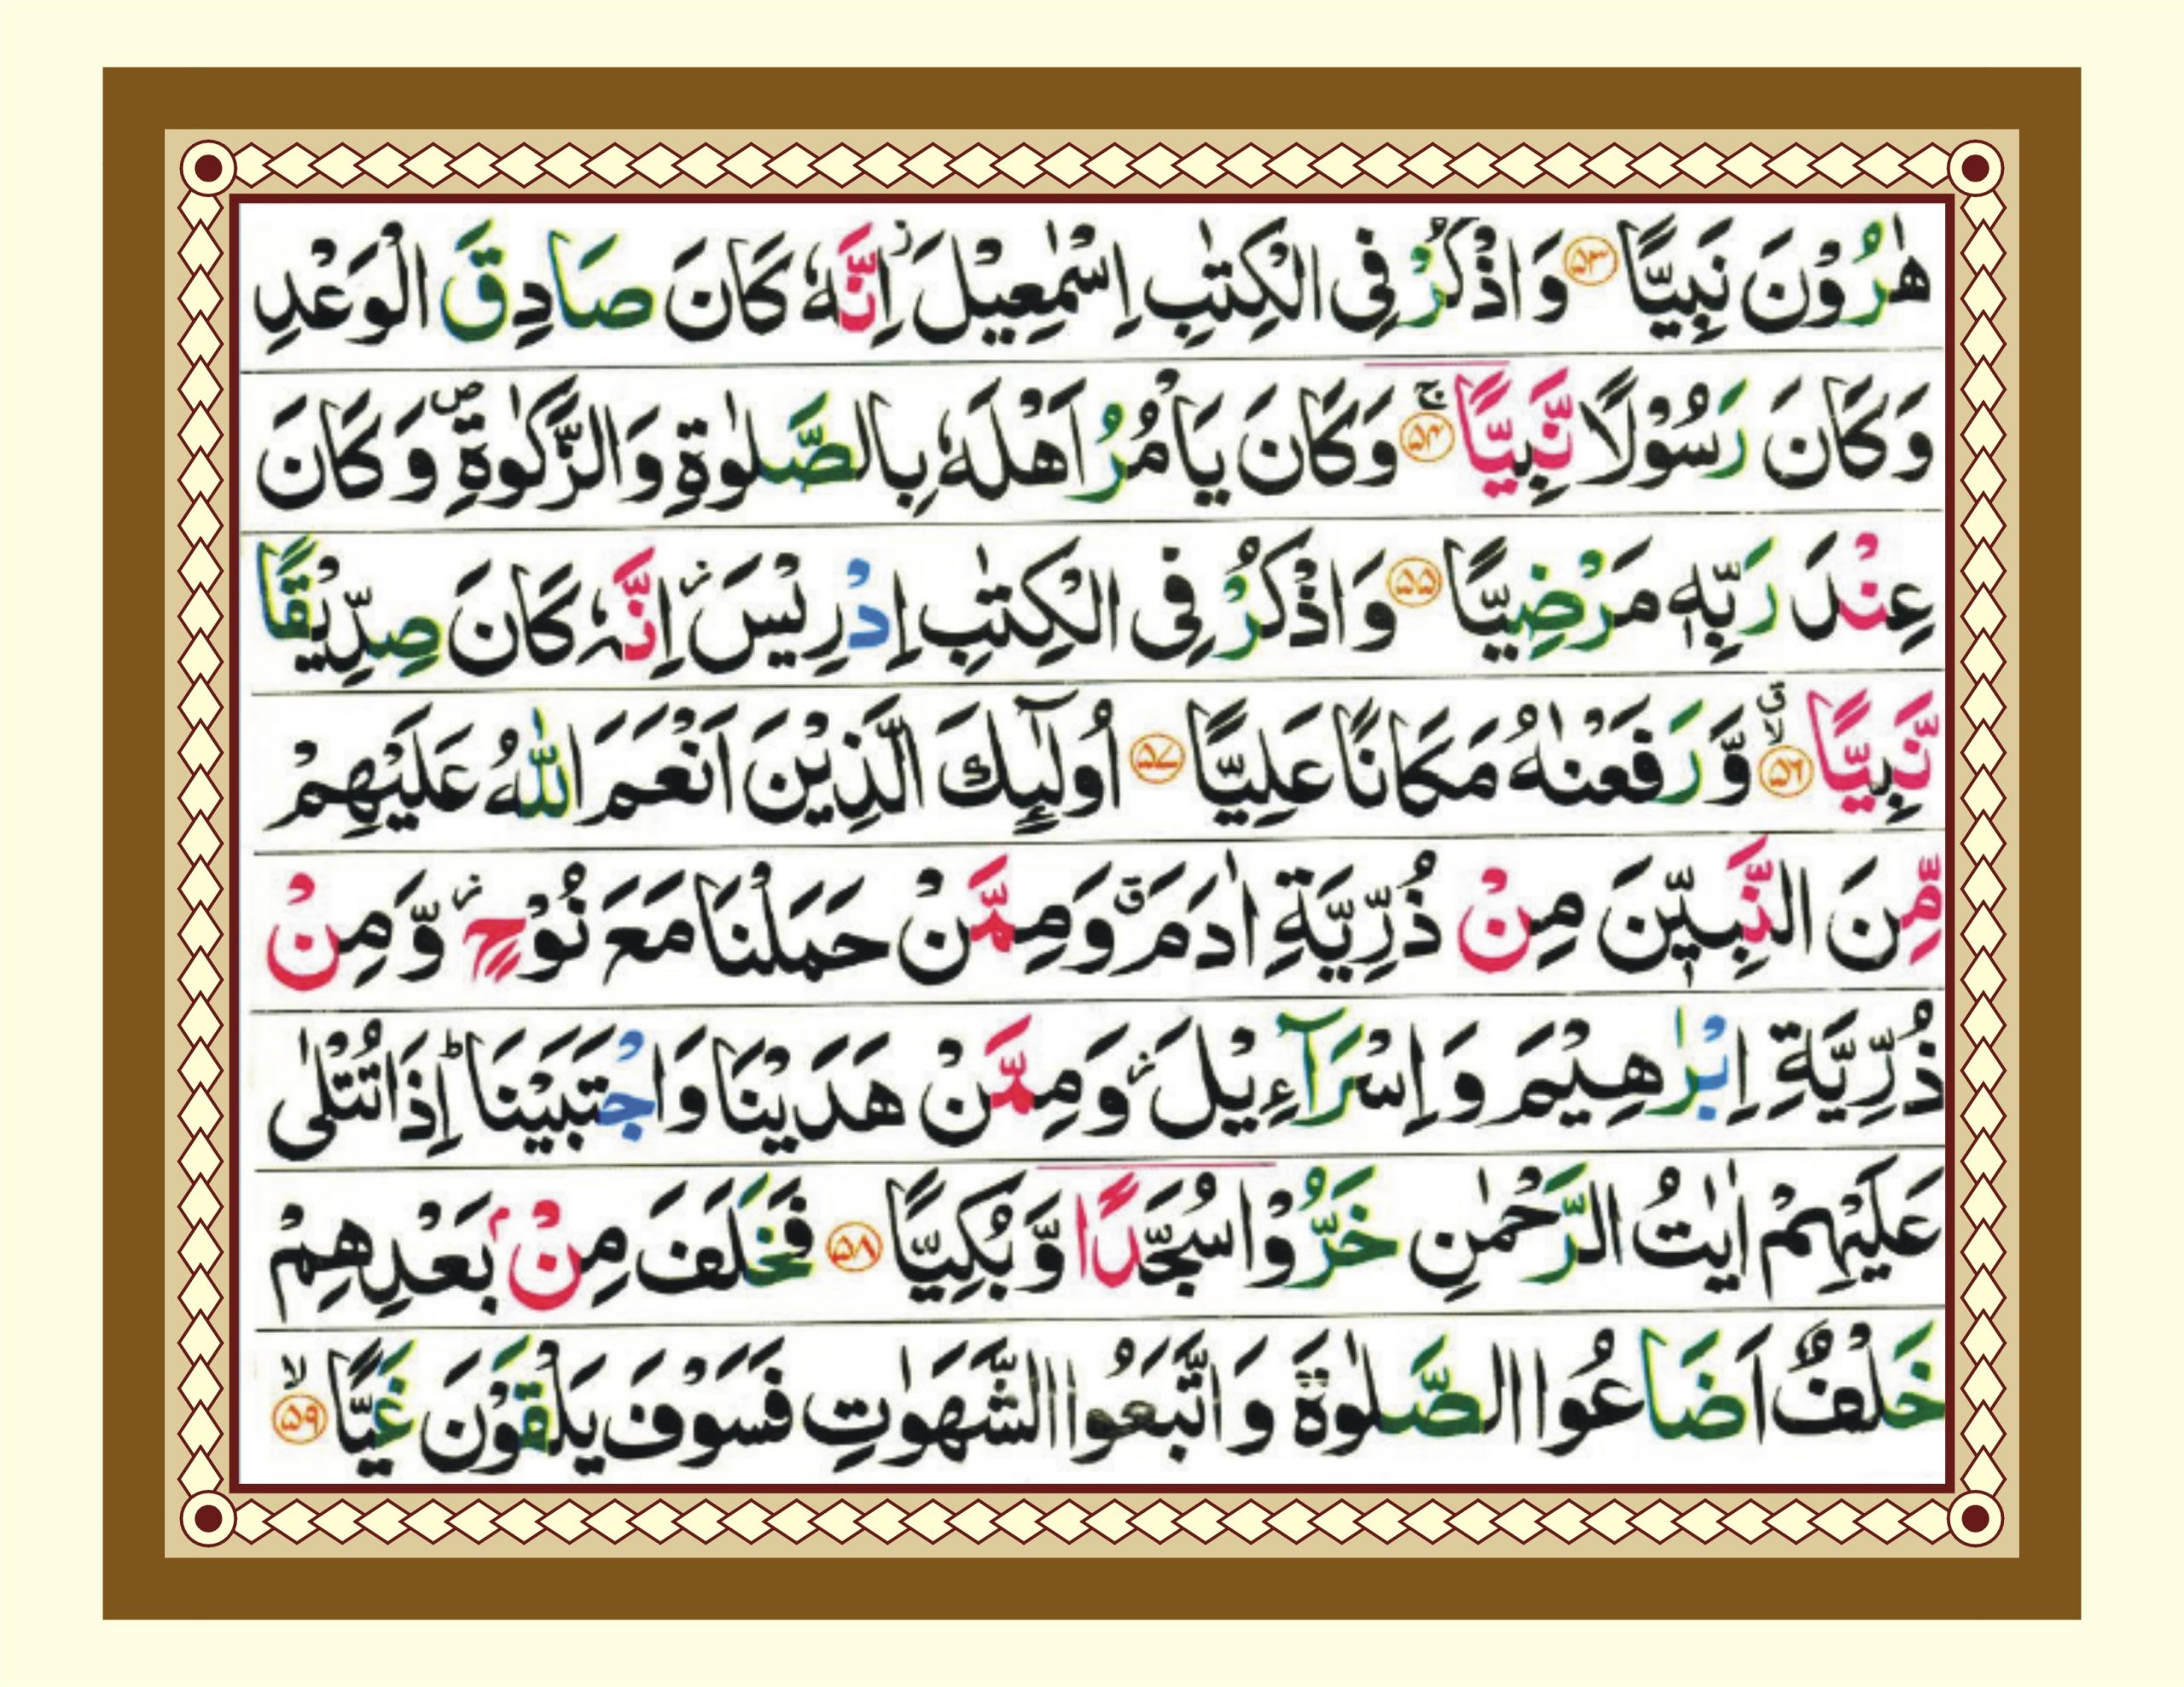 هٰرُوْنَ نَبِيًّا ﴿۵۳﴾ وَ اذْكُرْ فِی الْكِتٰبِ اِسْمٰعِيْلَ ؗ اِنَّهٗ كَانَ صَادِقَ الْوَعْدِ
وَ كَانَ رَسُوْلًا نَّبِيًّا ۚ﴿۵۴﴾ وَ كَانَ يَاْمُرُ اَهْلَهٗ بِالصَّلٰوةِ وَ الزَّكٰوةِ ۪ وَ كَانَ
عِنْدَ رَبِّهٖ مَرْضِيًّا ﴿۵۵﴾ وَ اذْكُرْ فِی الْكِتٰبِ اِدْرِيْسَ ؗ اِنَّهٗ كَانَ صِدِّيْقًا
نَّبِيًّا ۙق ﴿۵۶﴾ وَّ رَفَعْنٰهُ مَكَانًا عَلِيًّا ﴿۵۷﴾ اُولٰٓئِكَ الَّذِيْنَ اَنْعَمَ اللّٰهُ عَلَيْهِمْ
مِّنَ النَّبِيّٖنَ مِنْ ذُرِّيَّةِ اٰدَمَ ق وَ مِمَّنْ حَمَلْنَا مَعَ نُوْحٍ ؗ وَّ مِنْ
ذُرِّيَّةِ اِبْرٰهِيْمَ وَ اِسْرَآءِيْلَ ؗ وَ مِمَّنْ هَدَيْنَا وَ اجْتَبَيْنَا ؕ اِذَا تُتْلٰى
عَلَيْهِمْ اٰيٰتُ الرَّحْمٰنِ خَرُّوْا سُجَّدًا وَّ بُكِيًّا ﴿۵۸﴾ فَخَلَفَ مِنْۢ بَعْدِهِمْ
خَلْفٌ اَضَاعُوا الصَّلٰوةَ وَ اتَّبَعُوا الشَّهَوٰتِ فَسَوْفَ يَلْقَوْنَ غَيًّا ۙ﴿۵۹﴾